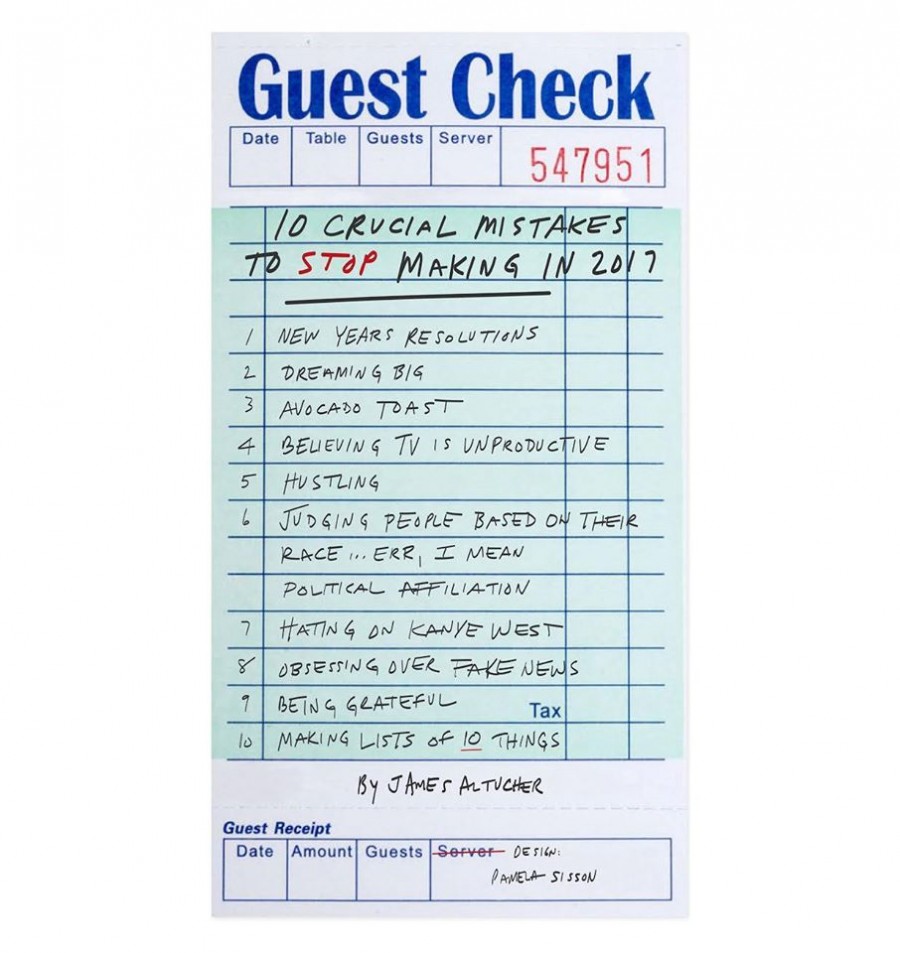 Guest Check
Date Table Guests Server 547951
10 CRUCIAL MISTAKES
TO STOP MAKING IN 2017
1 NEW YEARS RESOLUTIONS
2 DREAMING BIG
3 AVOCADO TOAST
4 BELIEVING TV IS UNPRODUCTIVE
5 HUSTLING
6 JUDGING PEOPLE BASED ON THEIR
RACE... ERR, I MEAN
POLITICAL AFFILIATION
7 HATING ON KANYE WEST
8 OBSESSING OVER FAKE NEWS
9 BEING GRATEFUL Tax
10 MAKING LISTS OF 10 THINGS
By JAMES ALTUCHER
Guest Receipt
Date Amount Guests Server DESIGN:
PAMELA SISSON